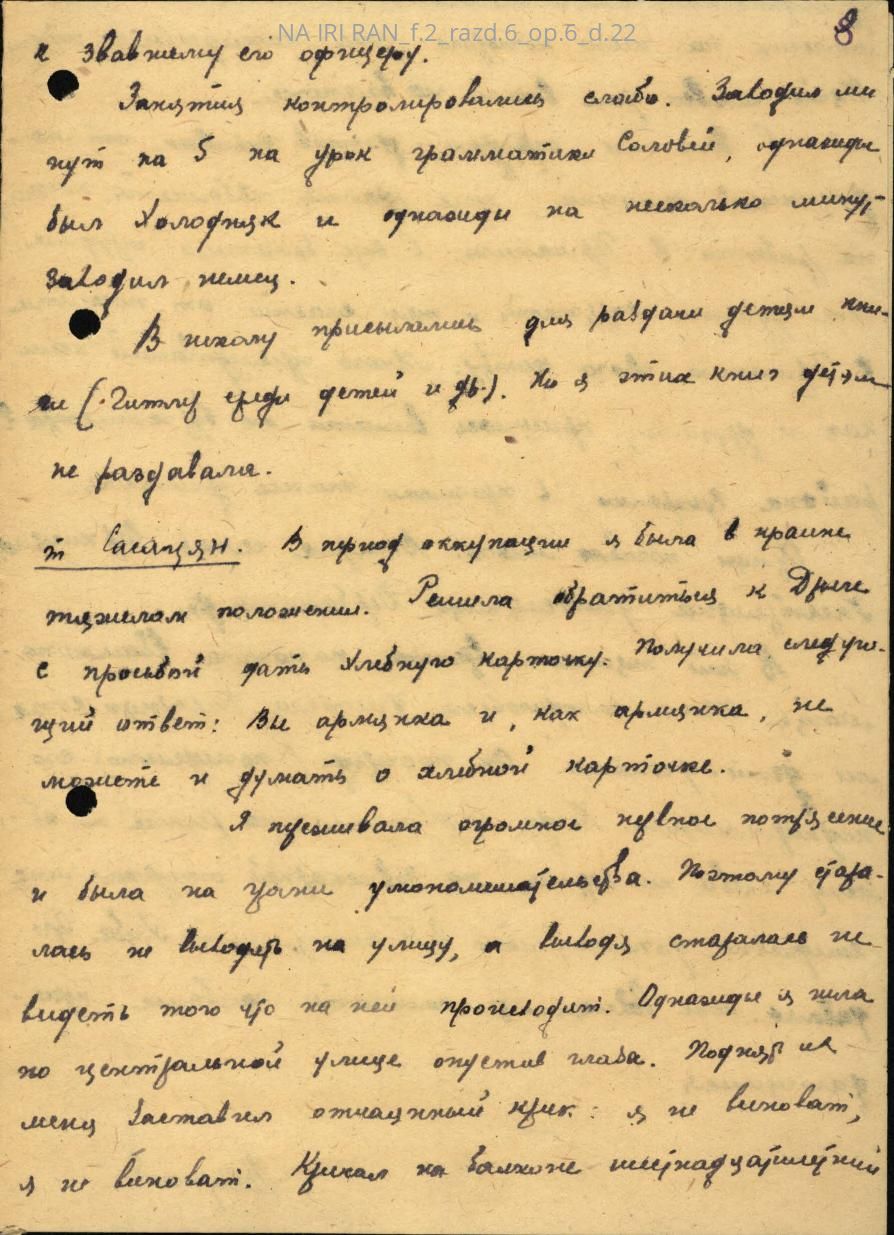 NA IRI RAN_f.2_razd.6_op.6_d.22
8
к звавшему его офицеру.
Занятия контролировались слабо. Заходил ми
нут на 5 на урок грамматики Соловей, однажды
был Холодняк и однажды на несколько минут
заходил немец.
В школу присылались для раздачи детям кни-
ги (Гитлер среди детей и др.). Но я этих книг детям
не раздавала.
т Сасацян. В период оккупации я была в крайне
тяжелом положении. Решила обратиться к
с просьбой дать хлебную карточку. Получила следую-
щий ответ: Вы армянка и, как армянка, не
можете и думать о хлебной карточке.
Я переживала огромное нервное потрясение
и была на грани умопомешательства. Поэтому стара-
лась не выходить на улицу, а выходя старалась не
видеть того что на ней происходит. Однажды я шла
по центральной улице опустив глаза. Поднять их
меня заставил отчаянный крик: я не виноват,
я не виноват. Кричал на балконе шестнадцатилетний